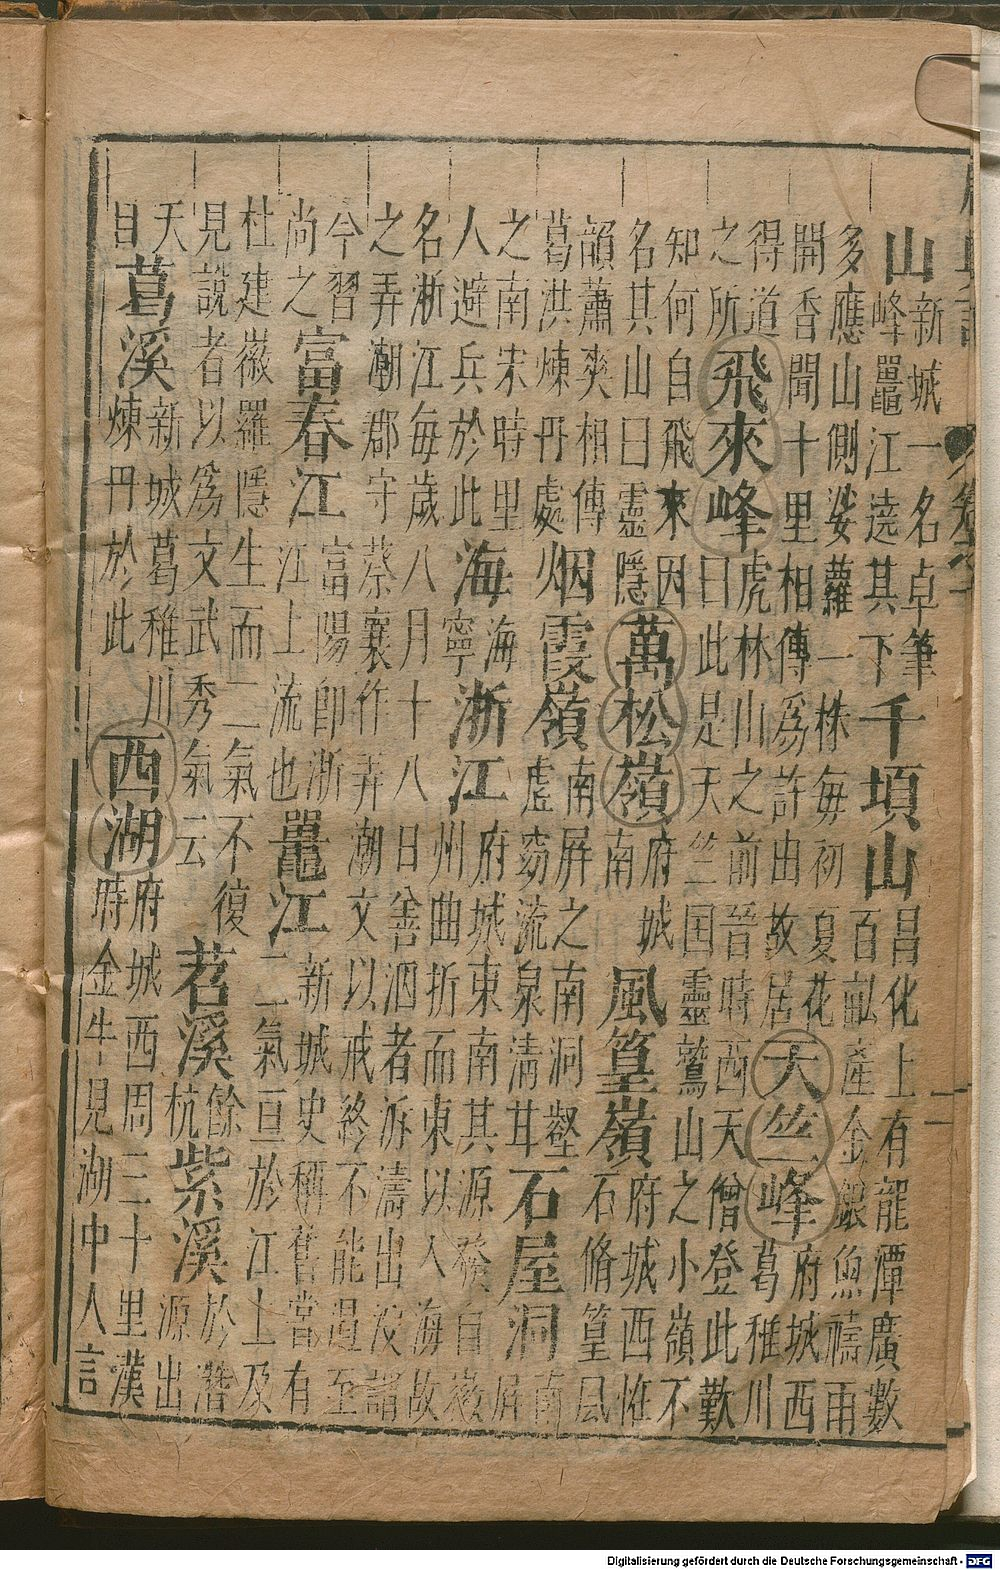 山新城一名卓筆峰鼉江遶其下千頃山昌化上有龍潭廣數百畝產金銀魚禱雨
多應山側娑蘿一株每初夏花開香聞十里相傳為許由故居天竺峰府城西葛稚川
得道之所飛來峰虎林山之前晉時西天僧登此歎曰此是天竺国靈鷲山之小嶺不
知何自飛來因名其山曰靈隱萬松嶺府城南風篁嶺府城西恠石脩篁風
韻蕭爽相傳葛洪煉丹處烟霞嶺南屏之南洞壑虛窈流泉清耳石屋洞南屏
之南宋時里人避兵於此海海寧浙江府城東南其源發自歙州曲折而東以入海故
名浙江每歲八月十八日善泅者泝濤出沒謂之弄潮郡守蔡襄作弄潮文以戒終不能遏至
今習尚之富春江富陽即浙江上流也鼉江新城史稱舊當有二氣亘於江上及
杜建徽羅隱生而二氣不復見說者以為文武秀氣云苕溪餘杭紫溪於潛源出
天目葛溪新城葛稚川煉丹於此西湖府城西周三十里漢時金牛見湖中人言
Digitalisierung gefördert durch die Deutsche Forschungsgemeinschaft - DFG